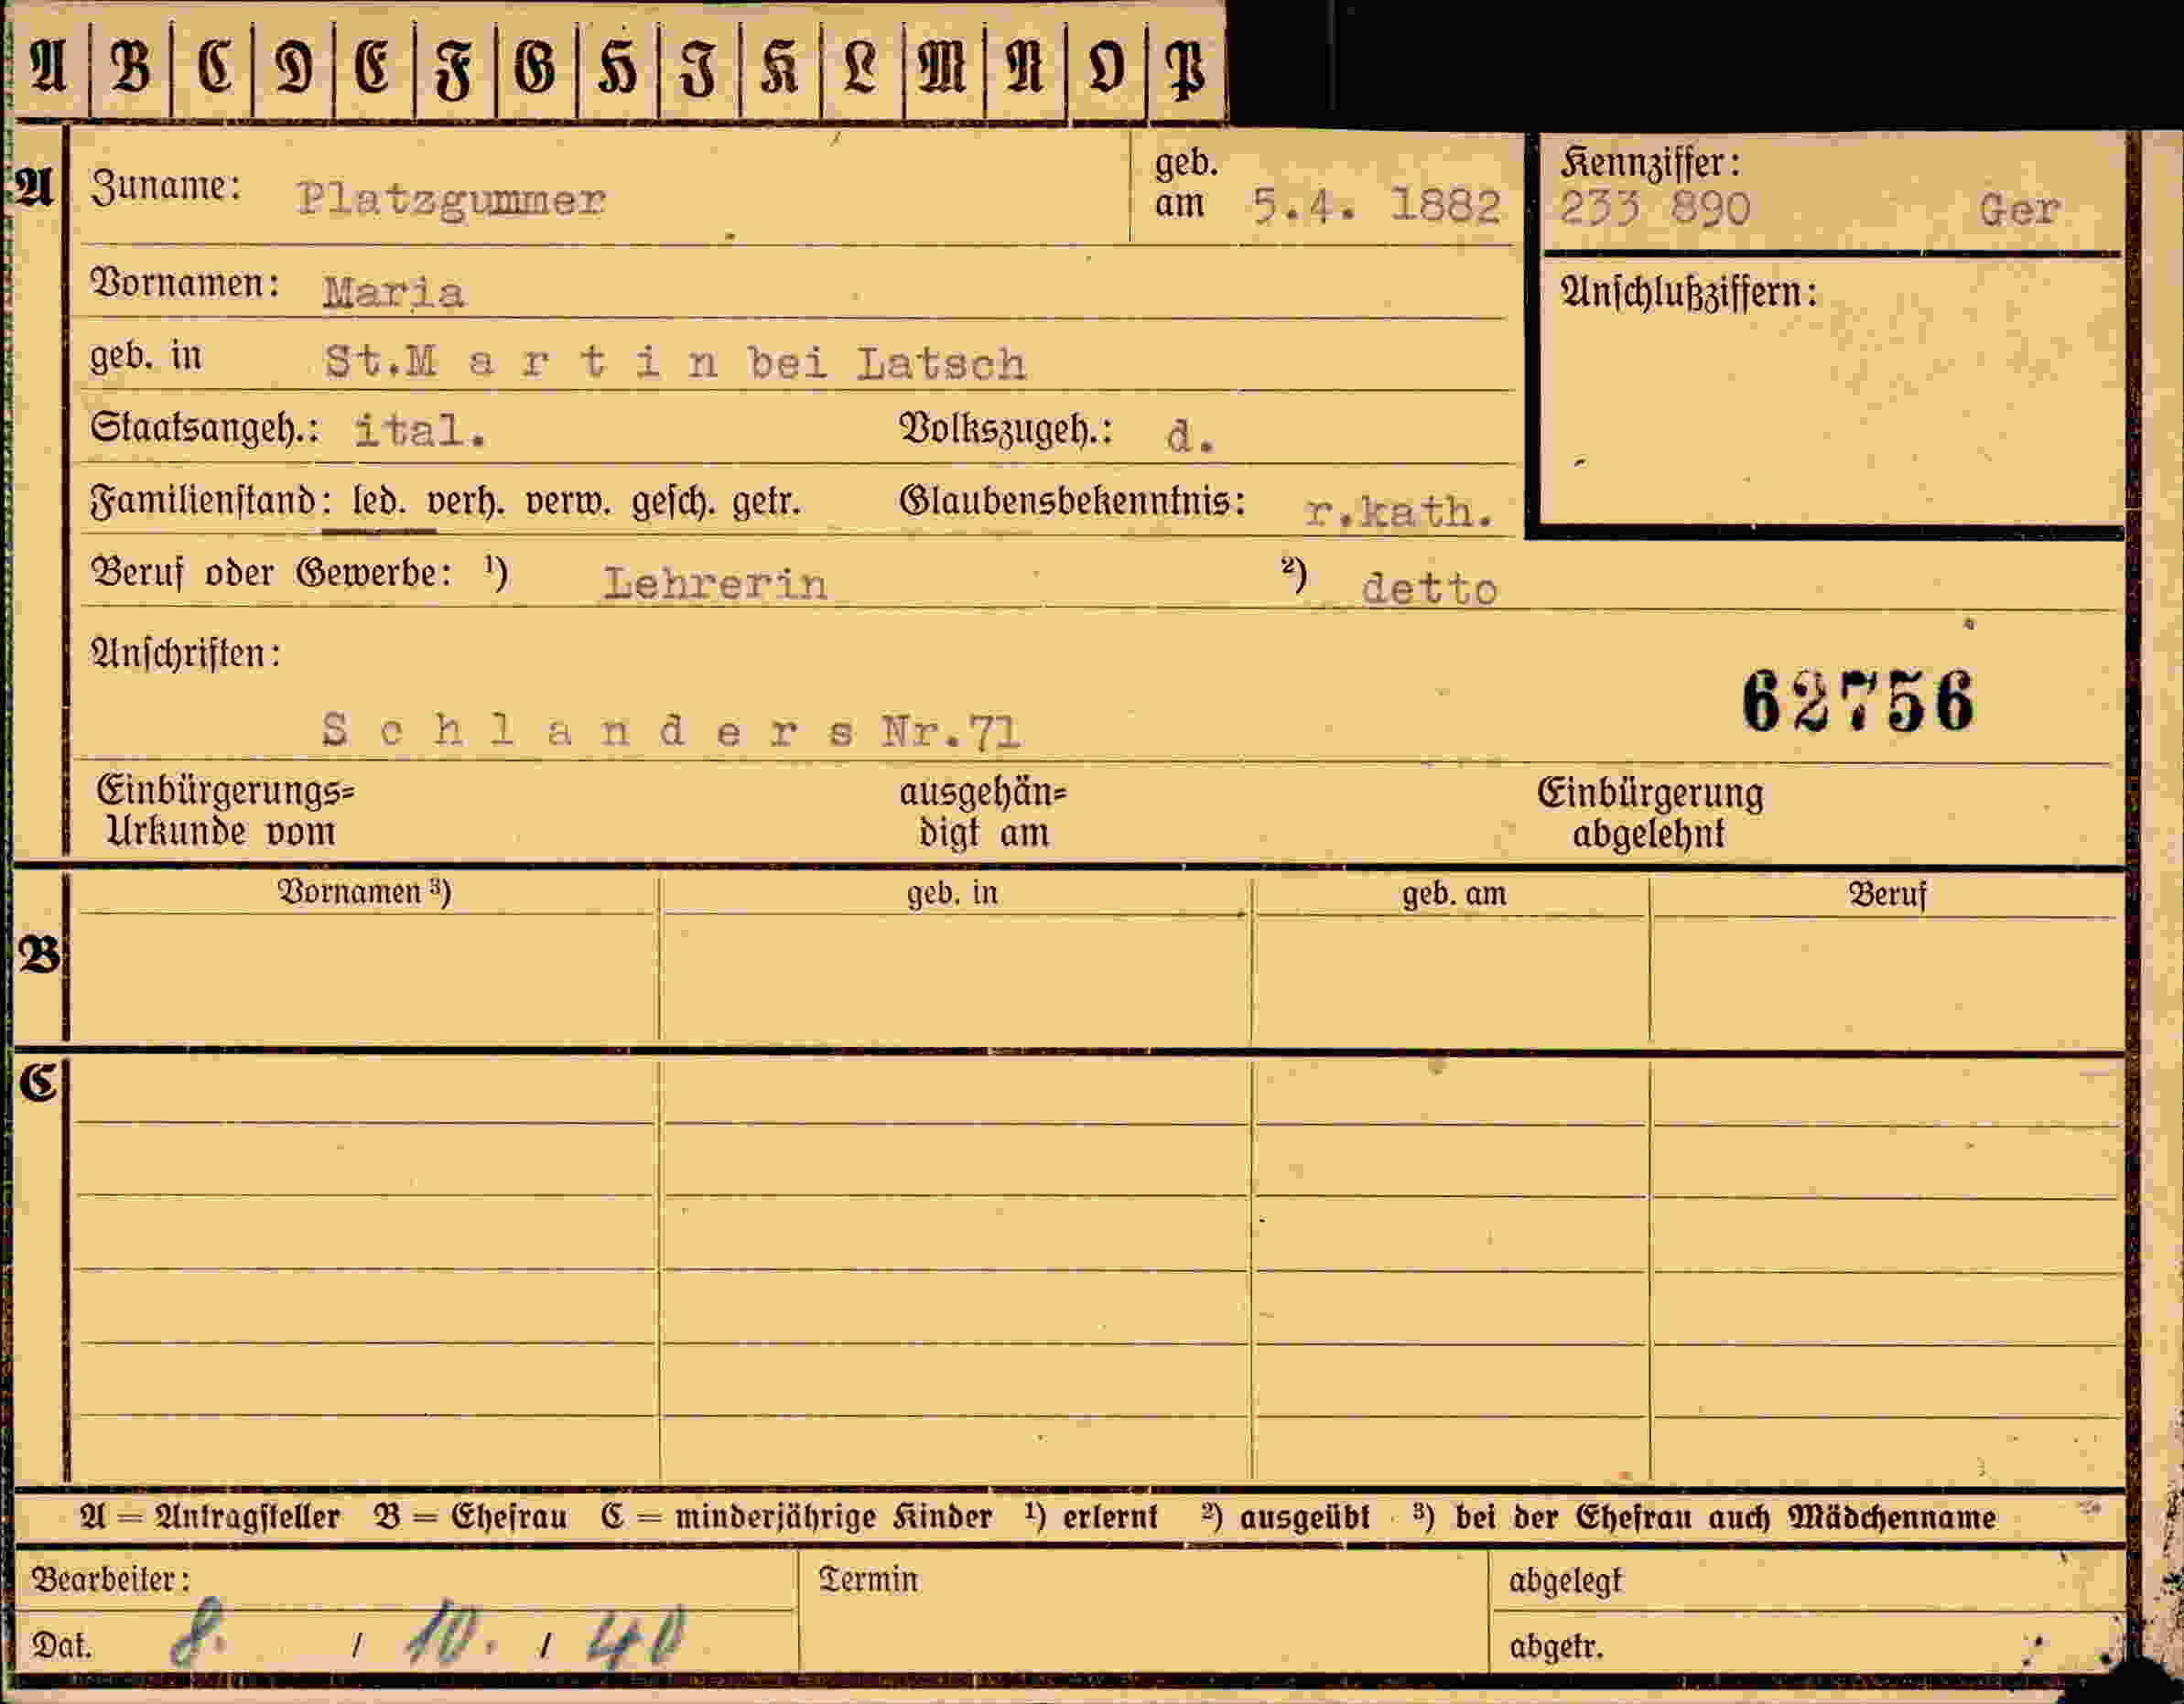 A B C D E F G H I K L M N O P
A Zuname: Platzgummer geb. am 5.4. 1882
Kennziffer: 233 890 Ger
Vornamen: Maria
Anschlußziffern:
geb. in St.M a r t i n bei Latsch
Staatsangeh.: ital. Volkszugeh.: d.
Familienstand: led. verh. verw. gesch. getr. Glaubensbekenntnis: r.kath.
Beruf oder Gewerbe: ¹) Lehrerin ²) detto
Anschriften:
62756
S c h l a n d e r s Nr.71
Einbürgerungs= ausgehän= Einbürgerung
Urkunde vom digt am abgelehnt
Vornamen ³) geb. in geb. am Beruf
B
C
A = Antragsteller B = Ehefrau C = minderjährige Kinder ¹) erlernt ²) ausgeübt ³) bei der Ehefrau auch Mädchenname
Bearbeiter: Termin abgelegt
Dat. 8. / 10. / 40 abgetr.